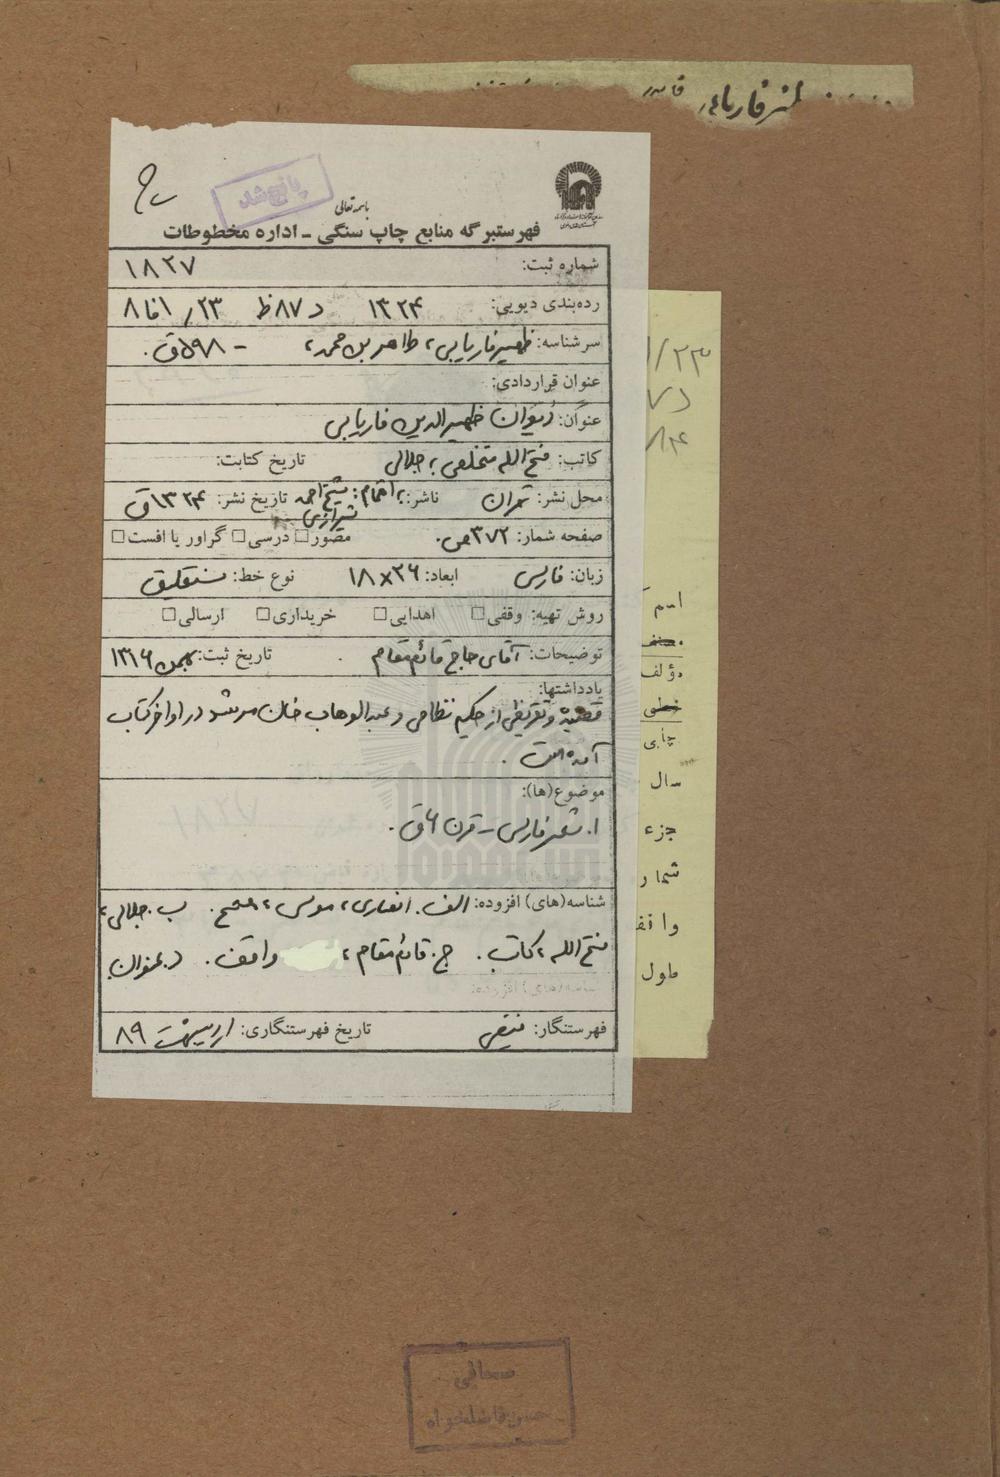 باسمه تعالی
فهرستبرگه منابع چاپ سنگی - اداره مخطوطات
شماره ثبت: ۱۸۲۷
رده‌بندی دیویی: ۱۳۲۴ د ۸۷ ظ ۲۳ / ۱ فا ۸
سرشناسه: ظهیر فاریابی، طاهر بن محمد، - ۵۹۸ق.
عنوان قراردادی:
عنوان: دیوان ظهیرالدین فاریابی
کاتب: فتح‌الله متخلص به جلالی تاریخ کتابت:
محل نشر: تهران ناشر: به اهتمام: شیخ احمد شیرازی تاریخ نشر: ۱۳۲۴ق
صفحه شمار: ۳۷۲ص. مصور درسی گراور یا افست
زبان: فارسی ابعاد: ۲۶×۱۸ نوع خط: نستعلیق
روش تهیه: وقفی اهدایی خریداری ارسالی
توضیحات: آقای حاج قائم مقام تاریخ ثبت: بهمن ۱۳۱۶
یادداشتها:
قصیده و تقریظی از حکیم نظامی و عبدالوهاب خان مرشد در اواخر کتاب
آمده است.
موضوع(ها):
۱. شعر فارسی - قرن ۶ق.
شناسه(های) افزوده: الف. انصاری، موسی، مصحح. ب. جلالی،
فتح‌الله، کاتب. ج. قائم مقام، واقف. د. عنوان.
فهرستنگار: فیض تاریخ فهرستنگاری: اردیبهشت ۸۹
۱/۲۳
د ۷
اسم
مصنف
مؤلف
خطی
چاپی
سال
جزء
شمار
واقف
طول
صحافی